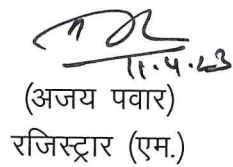 11.4.23
(अजय पवार)
रजिस्ट्रार (एम.)